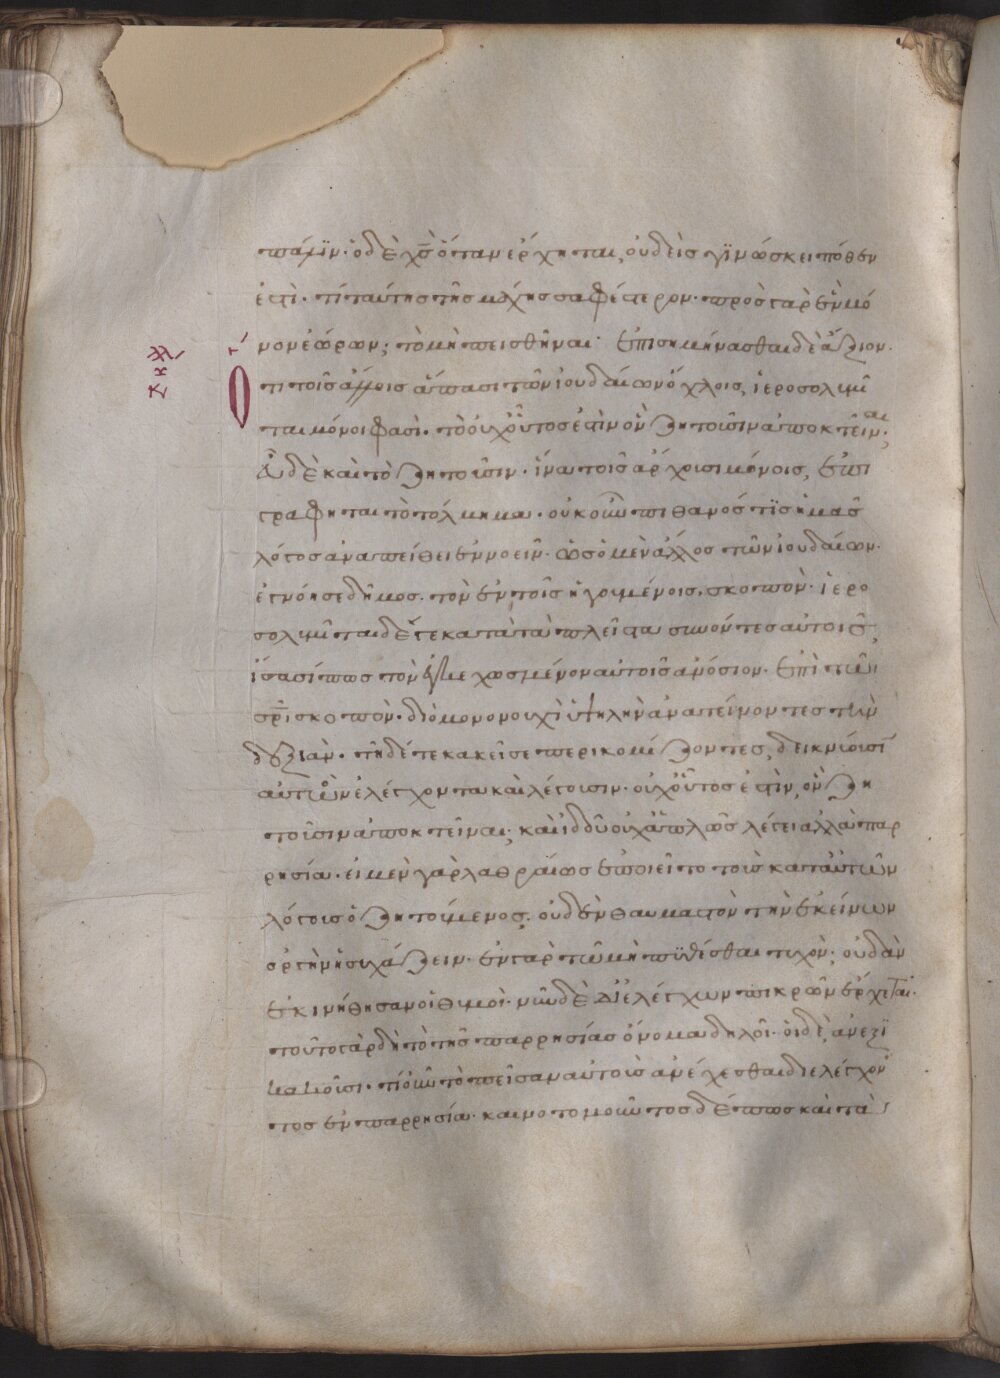 πάλϊν· ὁ δὲ χ̅ς̅ ὅταν ἔρχηται, οὐδεὶς γϊνώσκει πόθεν
ἐστὶ· τί ταύτης τῆς μάχης σαφέστερον· πρὸς γὰρ ἓν μό
νον ἑώρων; τὸ μὴ πεισθῆναι· ἐπισημήνασθαι δὲ ἄξιον·
Ὅτι τοῖς ἄλλοις ἅπασι τῶν ἰουδαίων ὄχλοις, ἱεροσολυμῖ
ται μόνοι φασὶ· τὸ οὐχ οὗτος ἐστὶν ὃν ζητοῦσιν ἀποκτεῖναι;
ὧδε καὶ τὸ ζητοῦσιν· ἵνα τοῖς ἄρχουσι μόνοις, ἐπι
γραφηται τὸ τόλμημα· οὐκοῦν πιθανός τϊς ἡμᾶς
λόγος ἀναπείθει ἐννοεῖν· ὡς ὁ μὲν ἄλλος τῶν ἰουδαίων·
ἐγνόησε δῆμος· τὸν ἐν τοῖς ἡγουμένοις σκοπὸν· ἱερο
σολυμῖται δέ γε κατὰ τὰ πλεῖστα συνόντες αὐτοῖς,
ἴσασί πως τὸν αὐτοῖς ἀνόσιον· ἐπὶ τῶι
σ̅ρ̅ι̅ σκοπὸν· διὸ μονονουχὶ ὑψηλὴν ἀνατείνοντες τὴν
δεξιὰν· τῆδέ τε κακεῖσε περικομίζοντες, δεικνύουσῖ
αὐτῶν ἐλέγχοντα καὶ λέγουσιν· οὐχ οὗτος ἐστὶν, ὃν ζη
τοῦσιν ἀποκτεῖναι; καὶ ἰδοὺ οὐχ ἁπλῶς λέγει ἀλλὰ παρ
ρησία· εἰ μὲν γὰρ λαθραίως ἐποιεῖτο τοὺς κατ αὐτῶν
λόγους ὁ ζητούμενος· οὐδὲν θαυμαστὸν τὴν ἐκείνων
ὀργὴν ἡσυχάζειν· ἐν γὰρ τῶ μὴ πϋθέσθαι τυχὸν; οὐδ ἂν
ἐκινήθησαν οἱ θυμοὶ· νῦν δὲ διελέγχων πικρῶν ἔρχεται·
τοῦτο γὰρ δὴ τὸ τῆς παρρησίας ὄνομα δηλοῖ· οἱ δὲ, ἀνεξϊ
κακοῦσι· τί οὖν τὸ πεῖσαν αὐτοὺς ἀνέχεσθαι διελέγχον
τος ἐν παρρησία· καινοτομοῦντος δέ πως καὶ τὰ